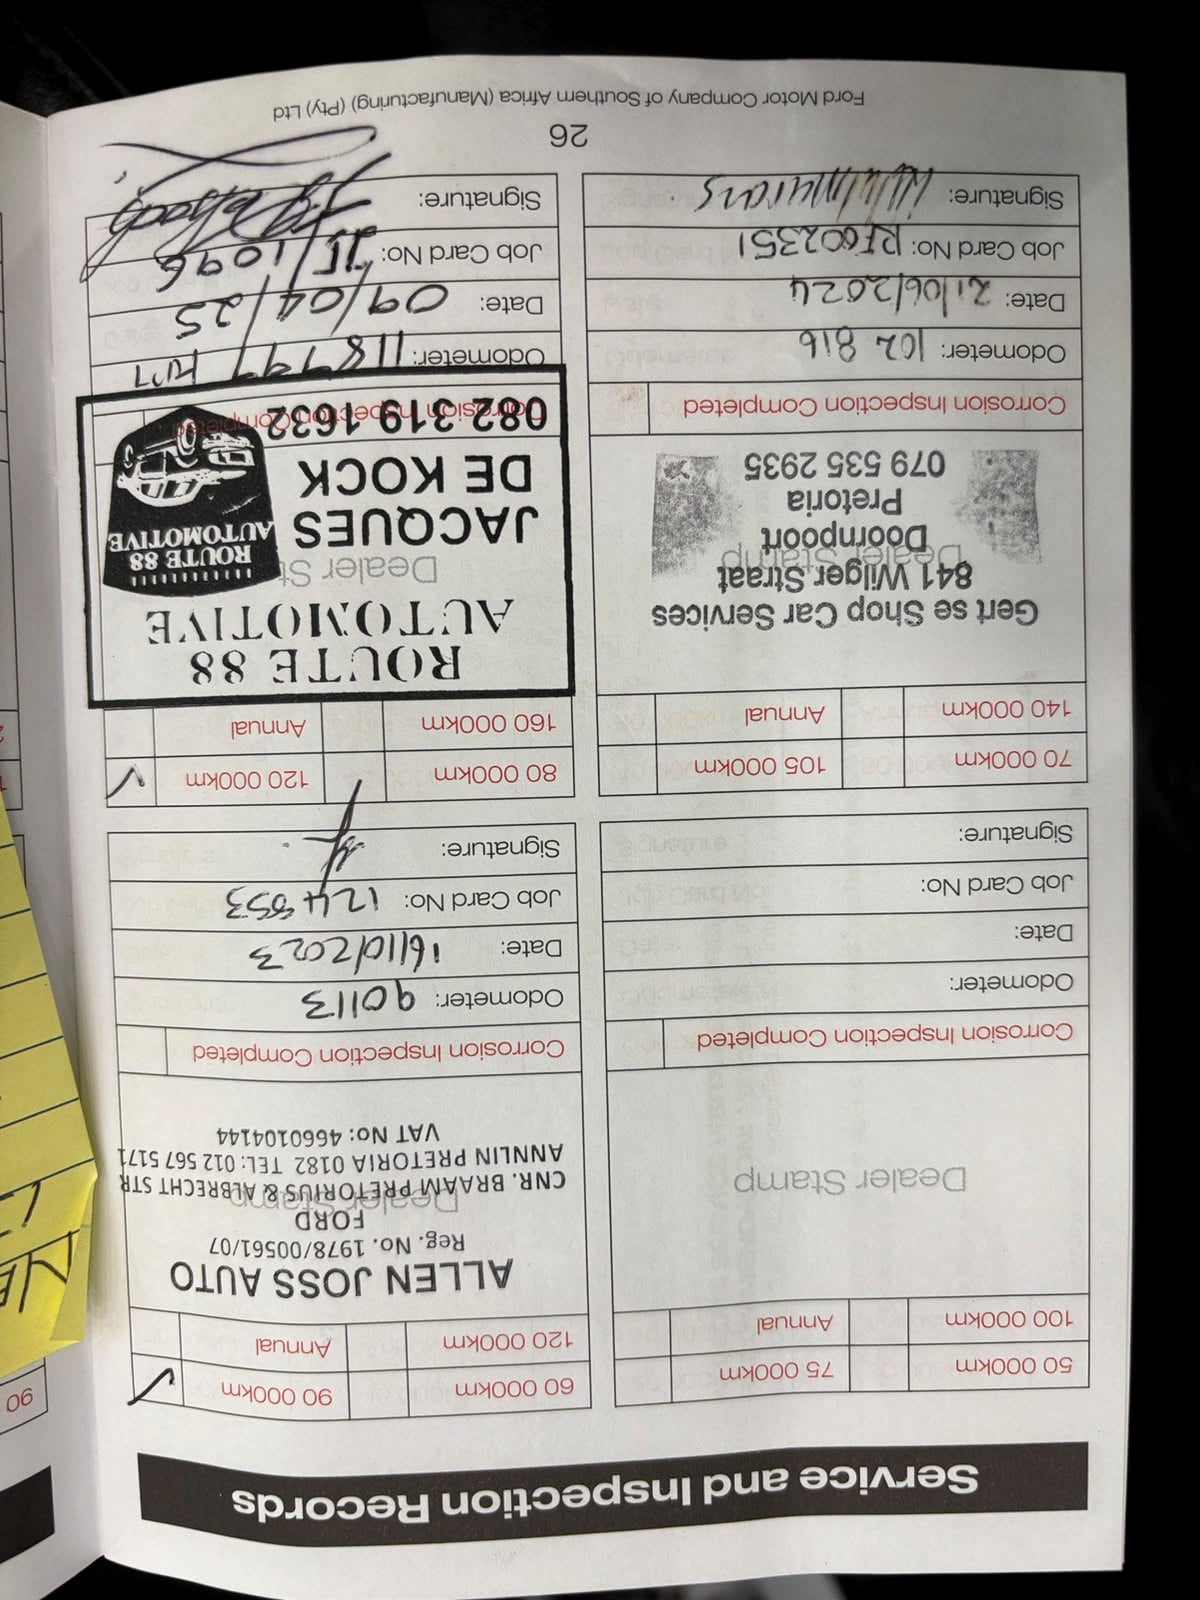 Service and Inspection Records
50 000km
75 000km
100 000km
Annual
Dealer Stamp
Corrosion Inspection Completed
Odometer:
Date:
Job Card No:
Signature:
60 000km
90 000km ✓
120 000km
Annual
Dealer Stamp
ALLEN JOSS AUTO
Reg. No. 1978/00561/07
FORD
CNR. BRAAM PRETORIUS & ALBRECHT STR
ANNLIN PRETORIA 0182 TEL: 012 567 5171
VAT No: 4660104144
Corrosion Inspection Completed
Odometer: 90113
Date: 16/10/2023
Job Card No: 124853
Signature:
70 000km
105 000km
140 000km
Annual
Dealer Stamp
Gert se Shop Car Services
841 Wilger Straat
Doornpoort
Pretoria
079 535 2935
Corrosion Inspection Completed
Odometer: 102 816
Date: 21/06/2024
Job Card No: RF002351
Signature:
80 000km
120 000km ✓
160 000km
Annual
Dealer St
ROUTE 88
AUTOMOTIVE
JACQUES
DE KOCK
082 319 1632
ROUTE 88
AUTOMOTIVE
Corrosion Inspection Completed
Odometer: 118799 KM
Date: 09/04/25
Job Card No: JT/1096
Signature:
26
Ford Motor Company of Southern Africa (Manufacturing) (Pty) Ltd
90